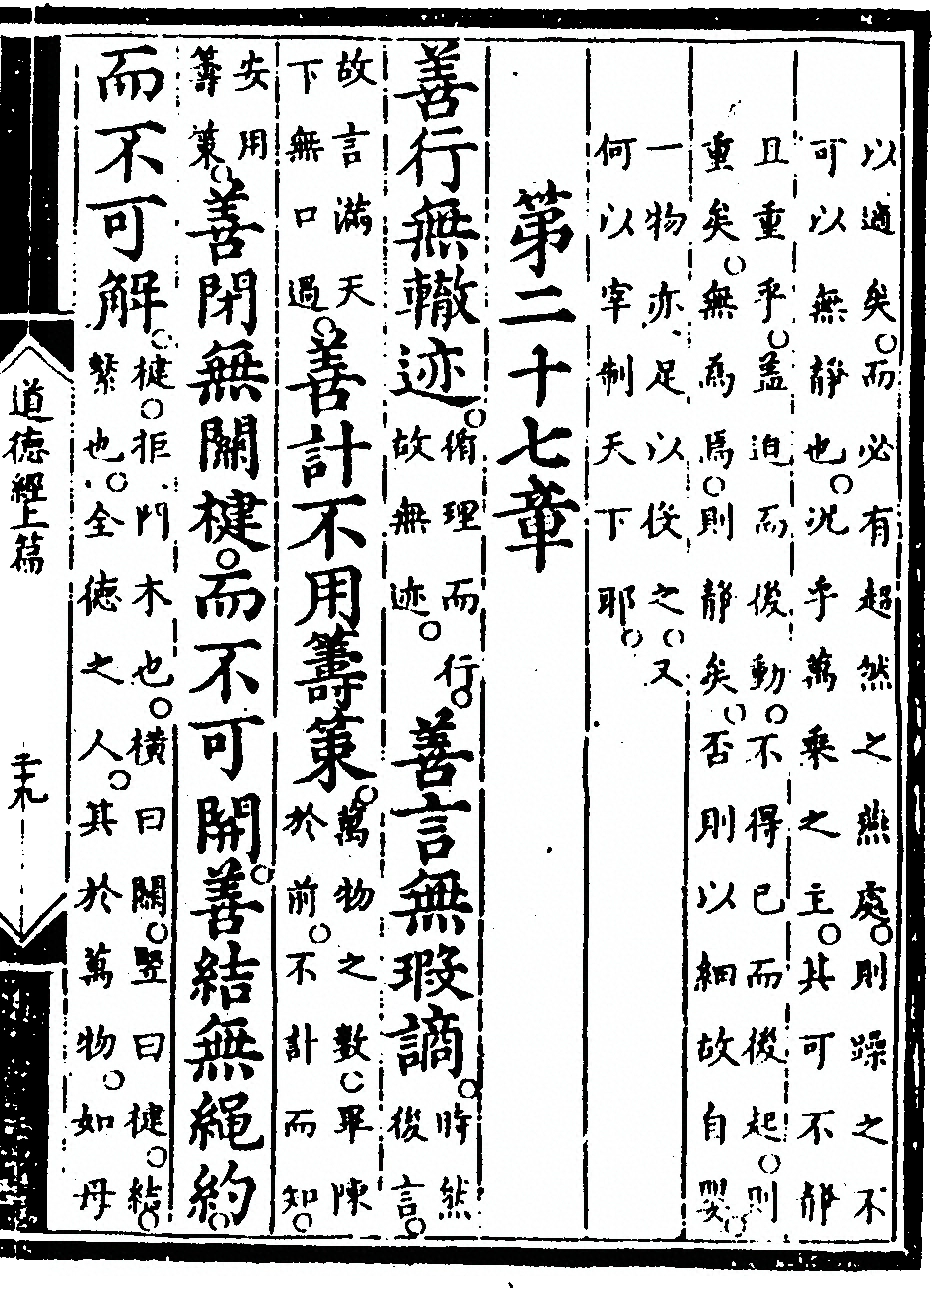 以適矣○而必有超然之燕處○則躁之不
可以無靜也○況乎萬乘之主○其可不靜
且重乎○蓋迫而後動○不得已而後起○則
重矣○無為焉○則靜矣○否則以細故自嬰○
一物亦足以役之○又
何以宰制天下耶○
第二十七章
善行無轍迹○循理而行○故無迹○善言無瑕謫○時然後言○
故言滿天下無口過○善計不用籌策○萬物之數○畢陳於前○不計而知○
安用籌策○善閉無關楗○而不可開○善結無繩約○
而不可解○楗○拒門木也○橫曰關○豎曰楗○結○繫也○全德之人○其於萬物○如母
道德經上篇
二十九